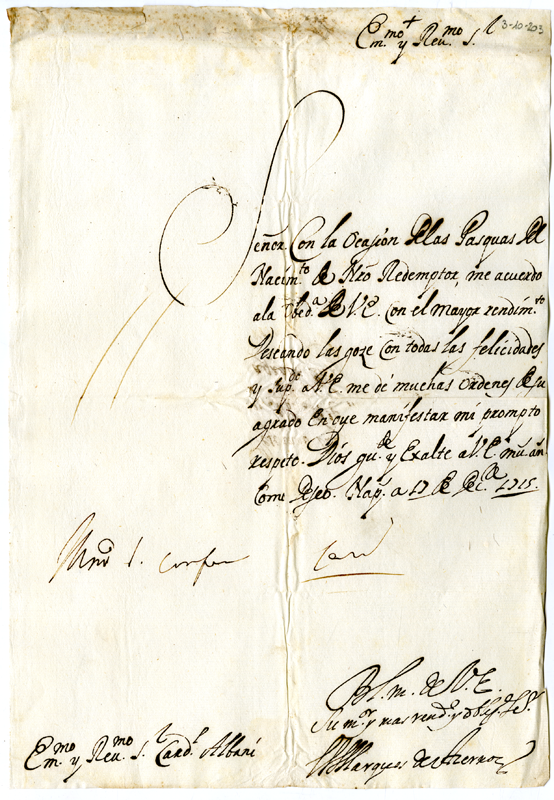 3-10-203
Em.mo y Reu.mo S.r
Señor. Con la Ocasion de las Pasquas del
Nacim.to de Nro Redemptor, me acuerdo
ala Obed.a de V.E. con el mayor rendim.to
Deseando las goze con todas las felicidades
y sup.do a V.E. me dé muchas ordenes de su
agrado en q̃ manifestar mi prompto
respeto. Dios gu.de y Exalte a V.E. mu. an.
Como deseo. Nap. a 17 de Dec. 1715.
B.L.m. de V.E.
Su m.r y mas rend.
Em.mo y Reu.mo S.r Card.l Albani
El Marques de